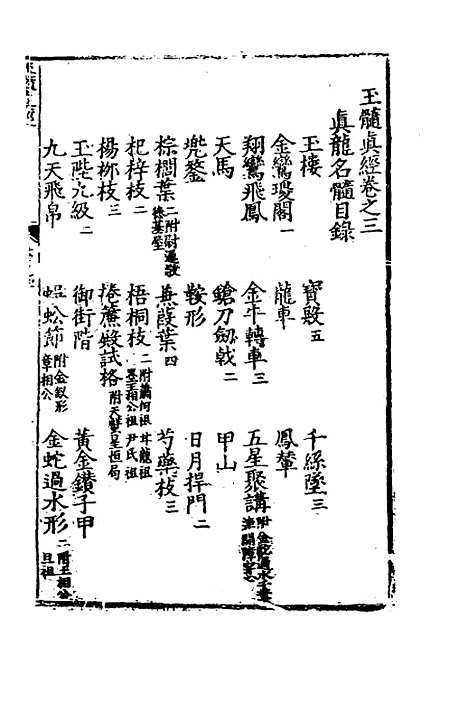 玉髓真經卷之三
真龍名髓目錄
玉樓 寶殿五 千絲墜三
金鸞瓊閣一 龍車 鳳輦
翔鸞飛鳳 金牛轉車三 五星聚講附金蛇過水
天馬 鎗刀劔戟二 甲山
兠鍪 鞍形 日月捍門二
棕櫚葉二附尉遲 蒹葭葉四 芍藥枝三
杞梓枝二 梧桐枝二附蕭何祖 王相公祖 尹氏祖
楊柳枝三 捲簾殿試格附天
玉陛九級二 御街階 黃金鑽子甲
九天飛帛 蜈蚣節附金釵形章相公 金蛇過水形二附王相公旦祖